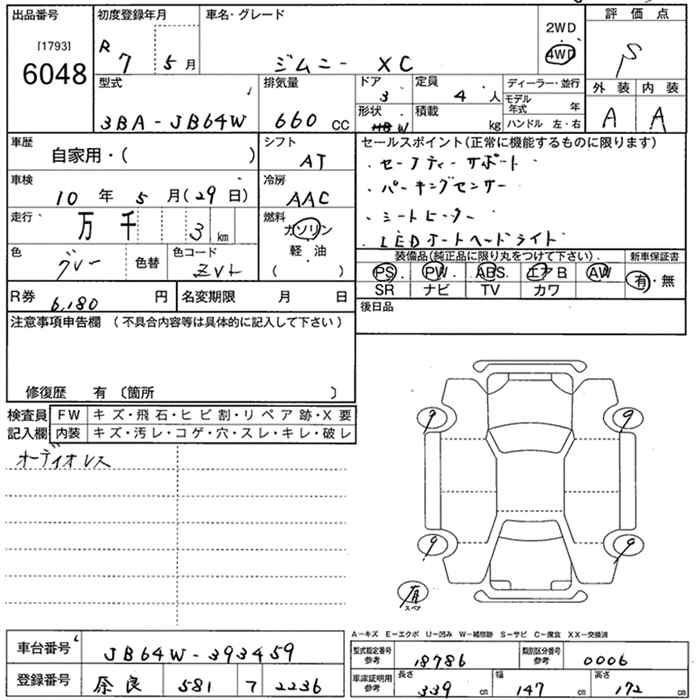 出品番号 初度登録年月 車名・グレード 2WD 評価点
[1793] R 7 5月 ジムニー XC 4WD S
6048
型式 排気量 ドア 定員 ディーラー・並行 外装 内装
3BA-JB64W 660 CC 3 4 人 モデル年式 年 A A
形状 W 積載 kg ハンドル 左・右
車歴 自家用・( ) シフト AT セールスポイント(正常に機能するものに限ります)
・セーフティーサポート
車検 10年 5月(29日) 冷房 AAC ・パーキングセンサー
走行 万 千 3 km 燃料 ガソリン ・シートヒーター
軽・油 ・LEDオートヘッドライト
( )
色 グレー 色替 色コード ZVL 装備品(純正品に限り丸をつけて下さい) 新車保証書
PS PW ABS エアB AW 有・無
SR ナビ TV カワ
R券 6,180 円 名変期限 月 日 後日品
注意事項申告欄(不具合内容等は具体的に記入して下さい)
修復歴 有〔箇所 〕
検査員 FW キズ・飛石・ヒビ割・リペア跡・X要
記入欄 内装 キズ・汚レ・コゲ・穴・スレ・キレ・破レ
オーディオレス
9 9
9 9
有
スペア
A-キズ E-エクボ U-凹み W-補修跡 S-サビ C-腐食 XX-交換済
車台番号 JB64W-393459 型式指定番号 参考 18786 類別区分番号 参考 0006
登録番号 奈良 581 7 2236 車庫証明用 参考 長さ 339 cm 幅 147 cm 高さ 172 cm